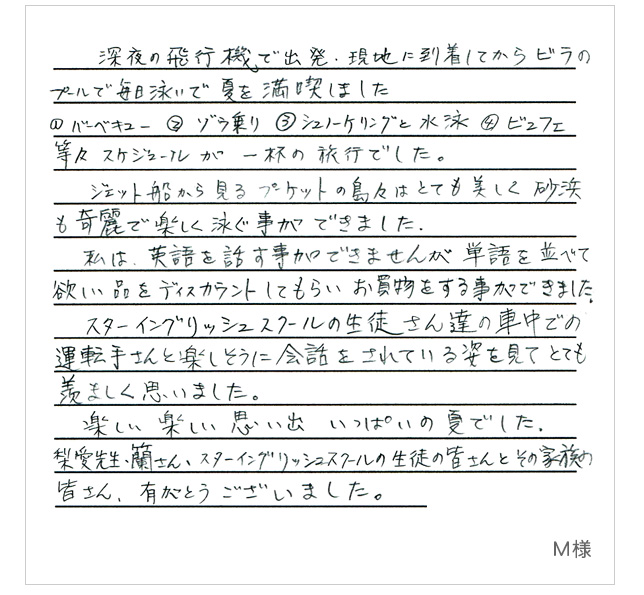 深夜の飛行機で出発．現地に到着してからビラの
プールで毎日泳いで夏を満喫しました
①バーベキュー ②ゾウ乗り ③シュノーケリングと水泳 ④ビュフェ
等々スケジュールが一杯の旅行でした。
ジェット船から見るプケットの島々はとても美しく砂浜
も奇麗で楽しく泳ぐ事ができました．
私は、英語を話す事ができませんが単語を並べて
欲しい品をディスカウントしてもらいお買物をする事ができました．
スターイングリッシュスクールの生徒さん達の車中での
運転手さんと楽しそうに会話をされている姿を見てとても
羨ましく思いました。
楽しい楽しい思い出いっぱいの夏でした．
梨愛先生、蘭さん、スターイングリッシュスクールの生徒の皆さんとその家族の
皆さん、有がとうございました。
M様